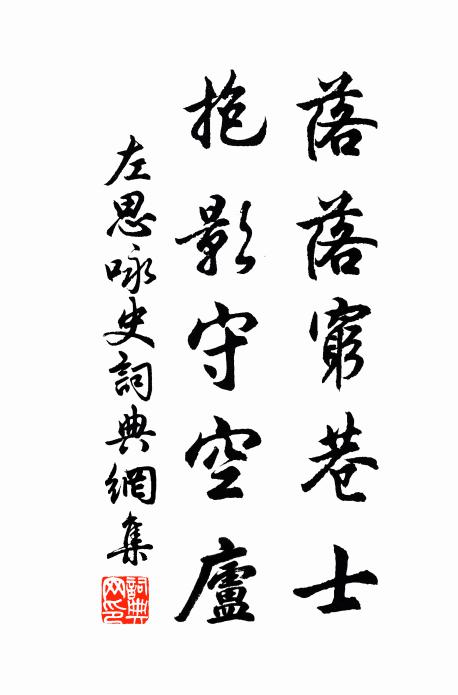 落落窮巷士
抱影守空廬
左思咏史詞典網集
詞典網印